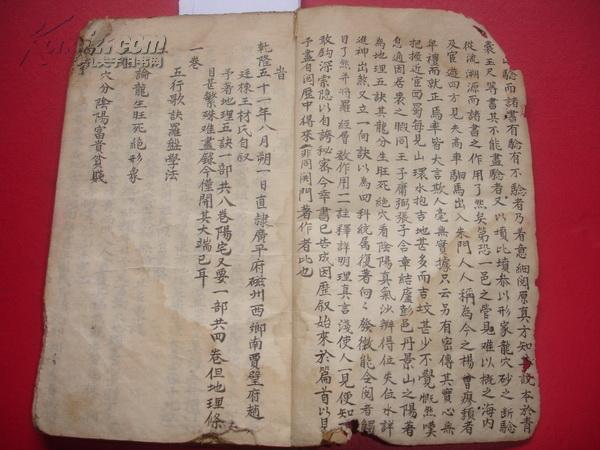 驗而諸書有驗有不驗者乃着意細閱原真方知其說本於青
囊玉尺篤其不能盡驗者又以墳比墳恭以形家龍穴砂之断驗
從流溯源而諸書之作用了然矣第恐一邑之管見难以概之海内
及宦遊四方見夫高車駟馬出入朱門人人稱為今之楊曾廖賴者
年禮而就正焉率皆大言欺人毫無實據只云另有密傳其實心無
把握近宦西蜀每見山環水抱吉地甚多而吉坟甚少不覺慨然嘆
息適因居喪之暇同王子庸弼張子含章結廬彭邑丹景山之陽著
為地理五訣其龍分生旺死绝穴看陰陽真氣沙辨得位失位水詳
進神出煞又立一向訣以為四科統属復著向向發微能令阅者觸
目了然并將羅經層数作用一一註釋詳明理真言淺使人一見便知
敢鈎深索隐以自誇秘寄今幸書已告成因歷叙始來於篇首以見
予盡自閱歷中得來非同閉門著作者比也
旹
乾隆五十一年八月朔一日直隸廣平府磁州西鄉南賈璧府趙
廷棟王材氏自叙
予著地理五訣一部共八巷陽宅又要一部共四卷但地理條
目甚繁殊难盡録今僅開其大端已耳
一卷
五行歌訣羅盤學法
論龍生旺死絕形象
穴分陰陽富貴貧賤